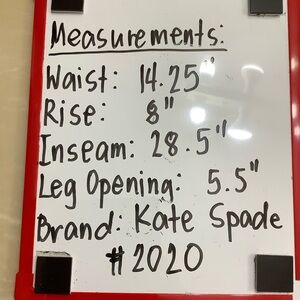 Measurements:
Waist: 14.25"
Rise: 8"
Inseam: 28.5"
Leg Opening: 5.5"
Brand: Kate Spade
#2020